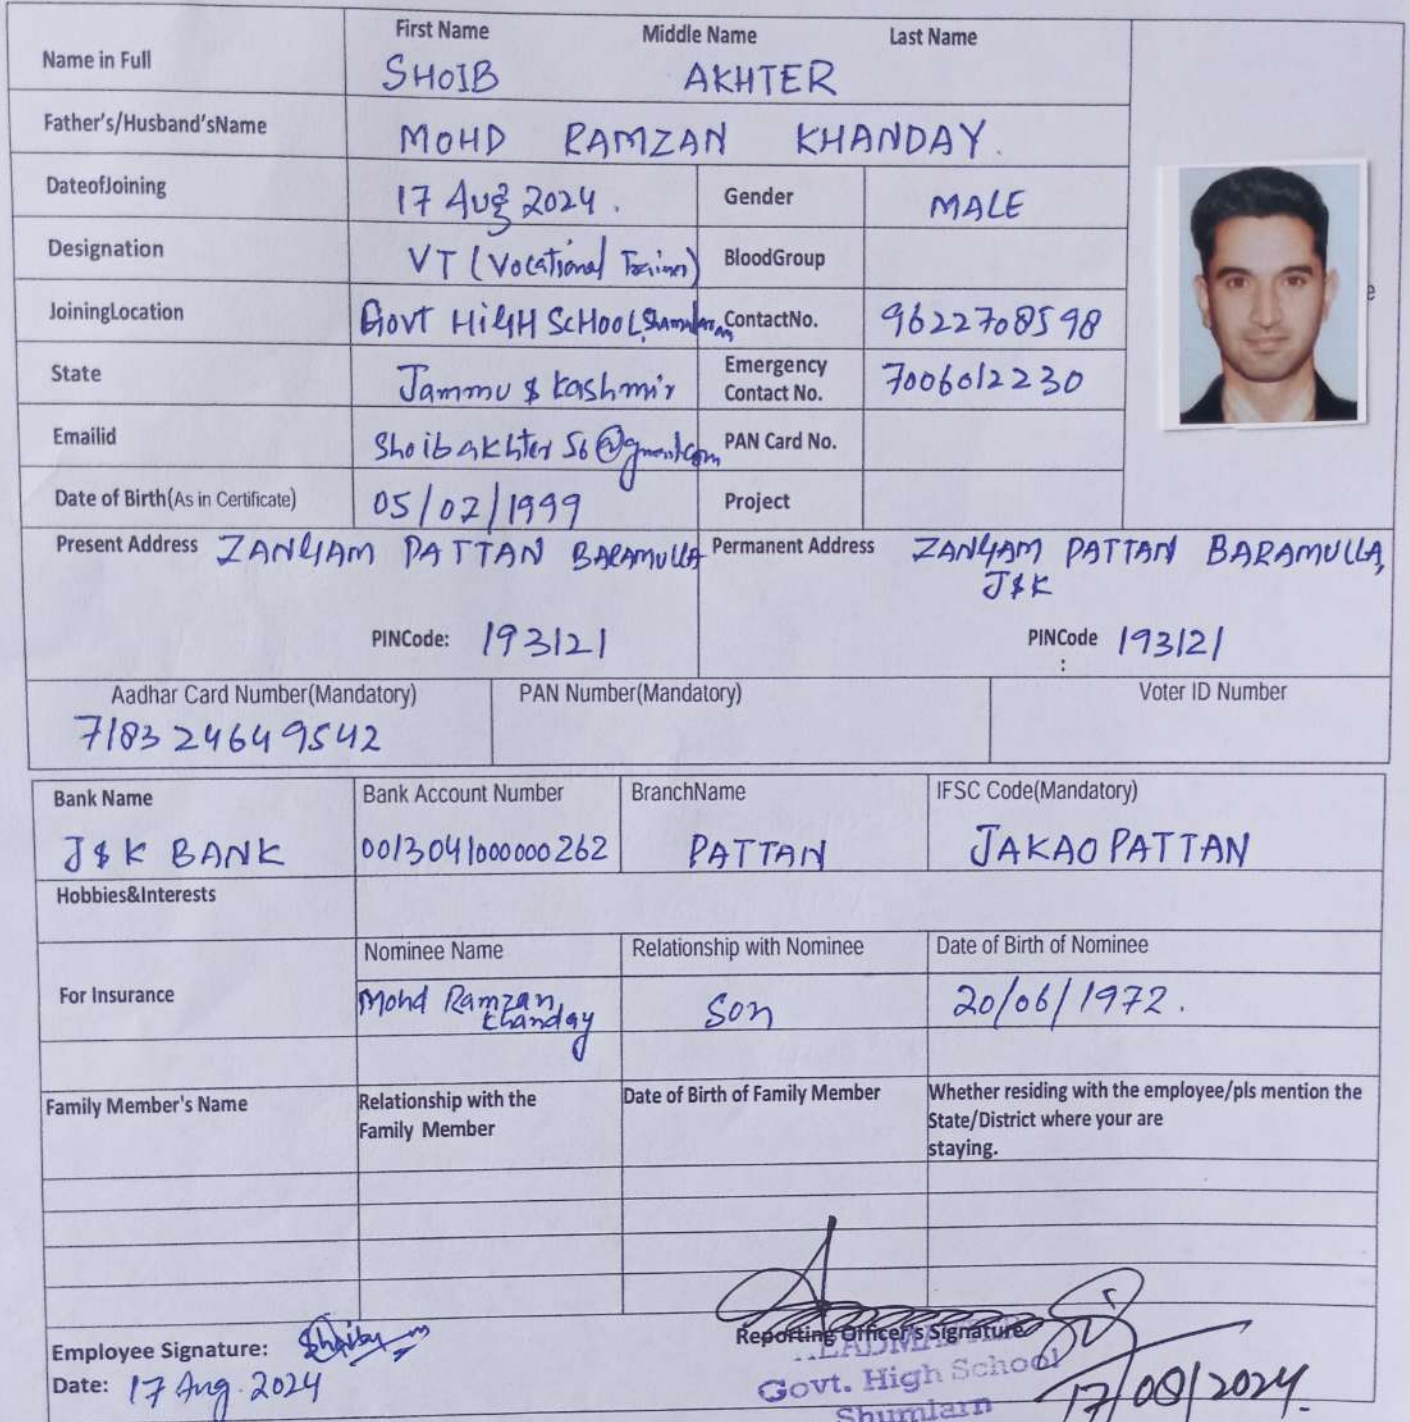 First Name Middle Name Last Name
Name in Full SHOIB AKHTER
Father's/Husband'sName MOHD RAMZAN KHANDAY.
DateofJoining 17 Aug 2024. Gender MALE
Designation VT (Vocational Trainer) BloodGroup
JoiningLocation Govt HiGH ScHooL, ContactNo. 9622708598
State Jammu & Kashmir Emergency Contact No. 7006012230
Emailid Shoibakhter56@gmail.com PAN Card No.
Date of Birth(As in Certificate) 05/02/1999 Project
Present Address ZANGAM PATTAN BARAMULLA Permanent Address ZANGAM PATTAN BARAMULLA,
J&K
PINCode: 193121 PINCode : 193121
Aadhar Card Number(Mandatory) PAN Number(Mandatory) Voter ID Number
7183 2464 9542
Bank Name Bank Account Number BranchName IFSC Code(Mandatory)
J&K BANK 0013041000000262 PATTAN JAKAOPATTAN
Hobbies&Interests
Nominee Name Relationship with Nominee Date of Birth of Nominee
For Insurance Mohd Ramzan, Khanday Son 20/06/1972.
Family Member's Name Relationship with the Date of Birth of Family Member Whether residing with the employee/pls mention the
Family Member State/District where your are
staying.
Employee Signature: Reporting Officer's Signature
Date: 17 Aug. 2024 Govt. High School 17/08/2024.
Shumlarn